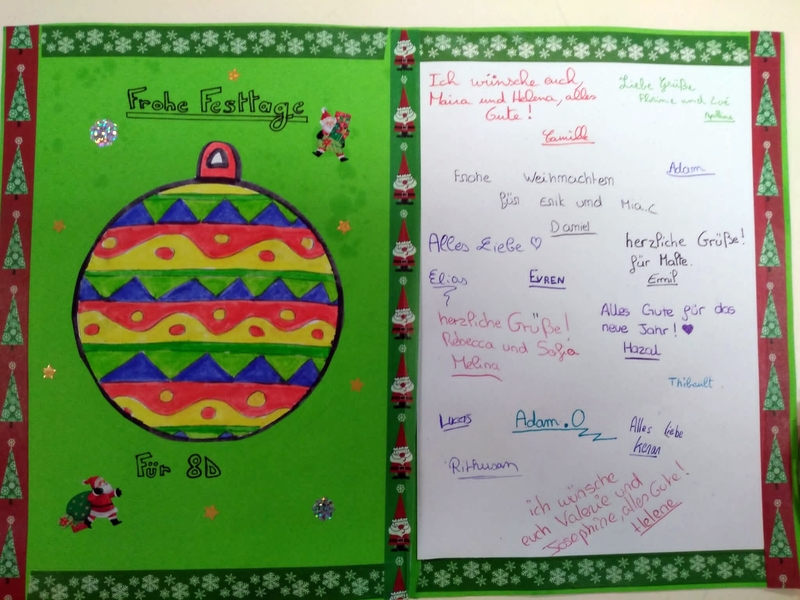 Frohe Festtage
Für 8D
Ich wünsche euch,
Maira und Helena, alles
Gute!
Camille
Liebe Grüße
und Zoé
Adam
Frohe Weihnachten
für Erik und Mia.C
Daniel
Alles Liebe ♡
herzliche Grüße!
für Malte.
Emil
Elias
EVREN
herzliche Grüße!
Rebecca und Sofia
Melina
Alles Gute für das
neue Jahr! ♥
Hazal
Thibault.
Lucas
Adam.O
Alles liebe
Kenan
Rithusan
ich wünsche
euch Valerie und
Josephine, alles Gute!
Helene